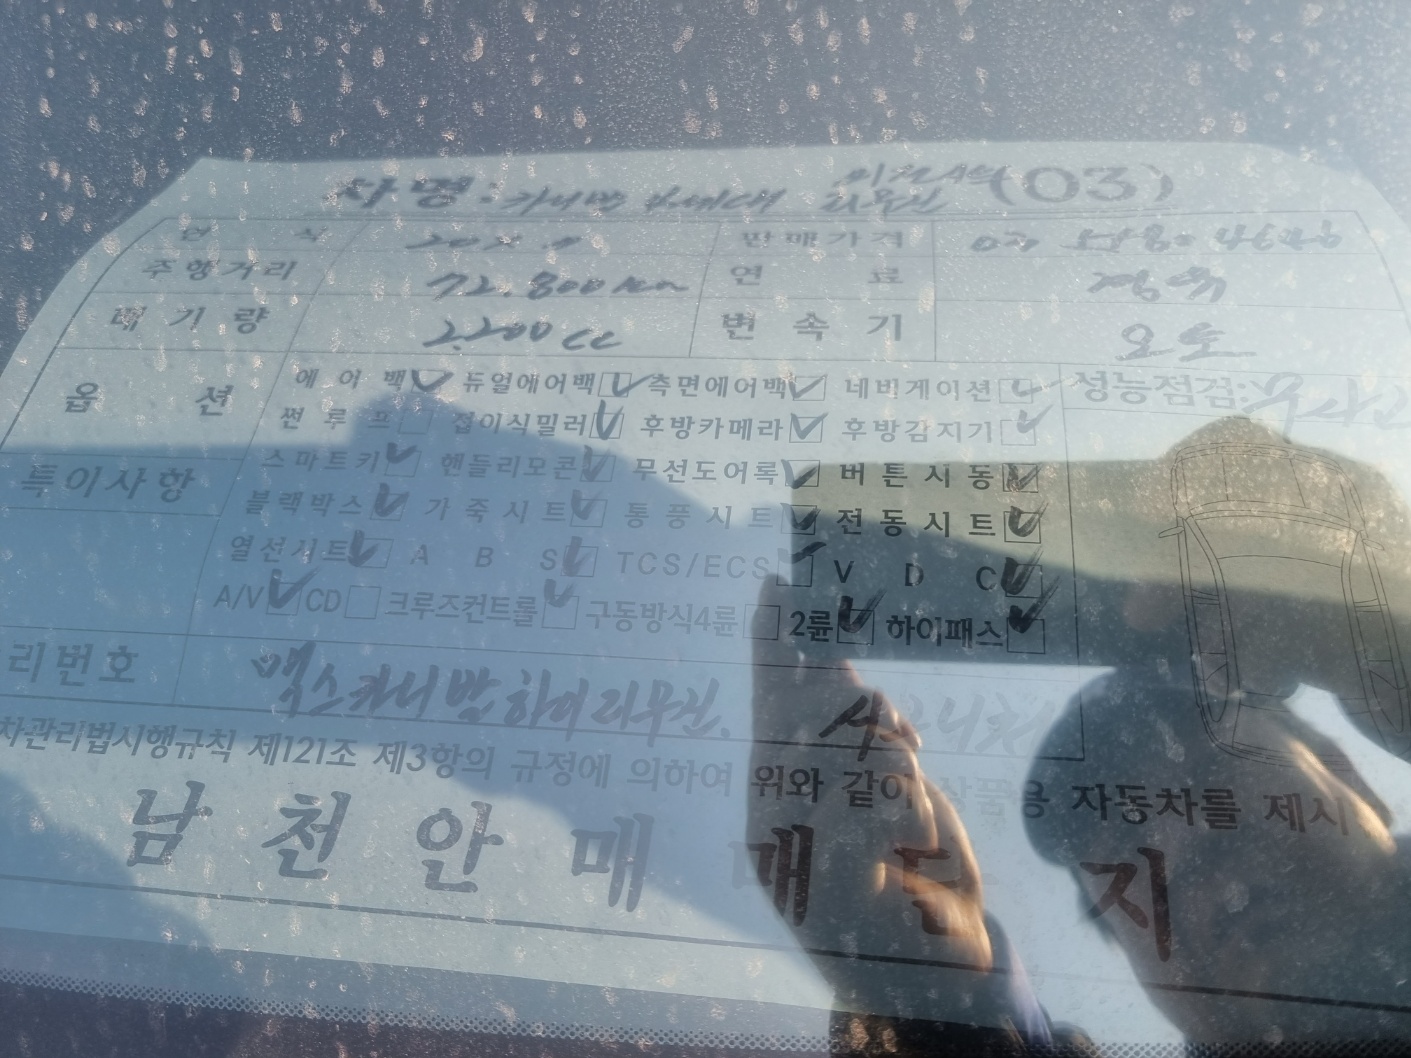 차명: 카니발 4세대 하이리무진 (03)
연 식 판매가격
주행거리 72.800km 연 료 경유
배 기 량 2.200cc 변 속 기 오토
옵 션 에 어 백 듀얼에어백 측면에어백 네비게이션 성능점검:무사고
썬 루 프 접이식밀러 후방카메라 후방감지기
특이사항 스마트키 핸들리모콘 무선도어록 버 튼 시 동
블랙박스 가 죽 시 트 통 풍 시 트 전 동 시 트
열선시트 A B S TCS/ECS V D C
A/V CD 크루즈컨트롤 구동방식4륜 2륜 하이패스
리번호 맥스카니발하이리무진.
차관리법시행규칙 제121조 제3항의 규정에 의하여 위와 같이 상품용 자동차를 제시
남 천 안 매 매 단 지